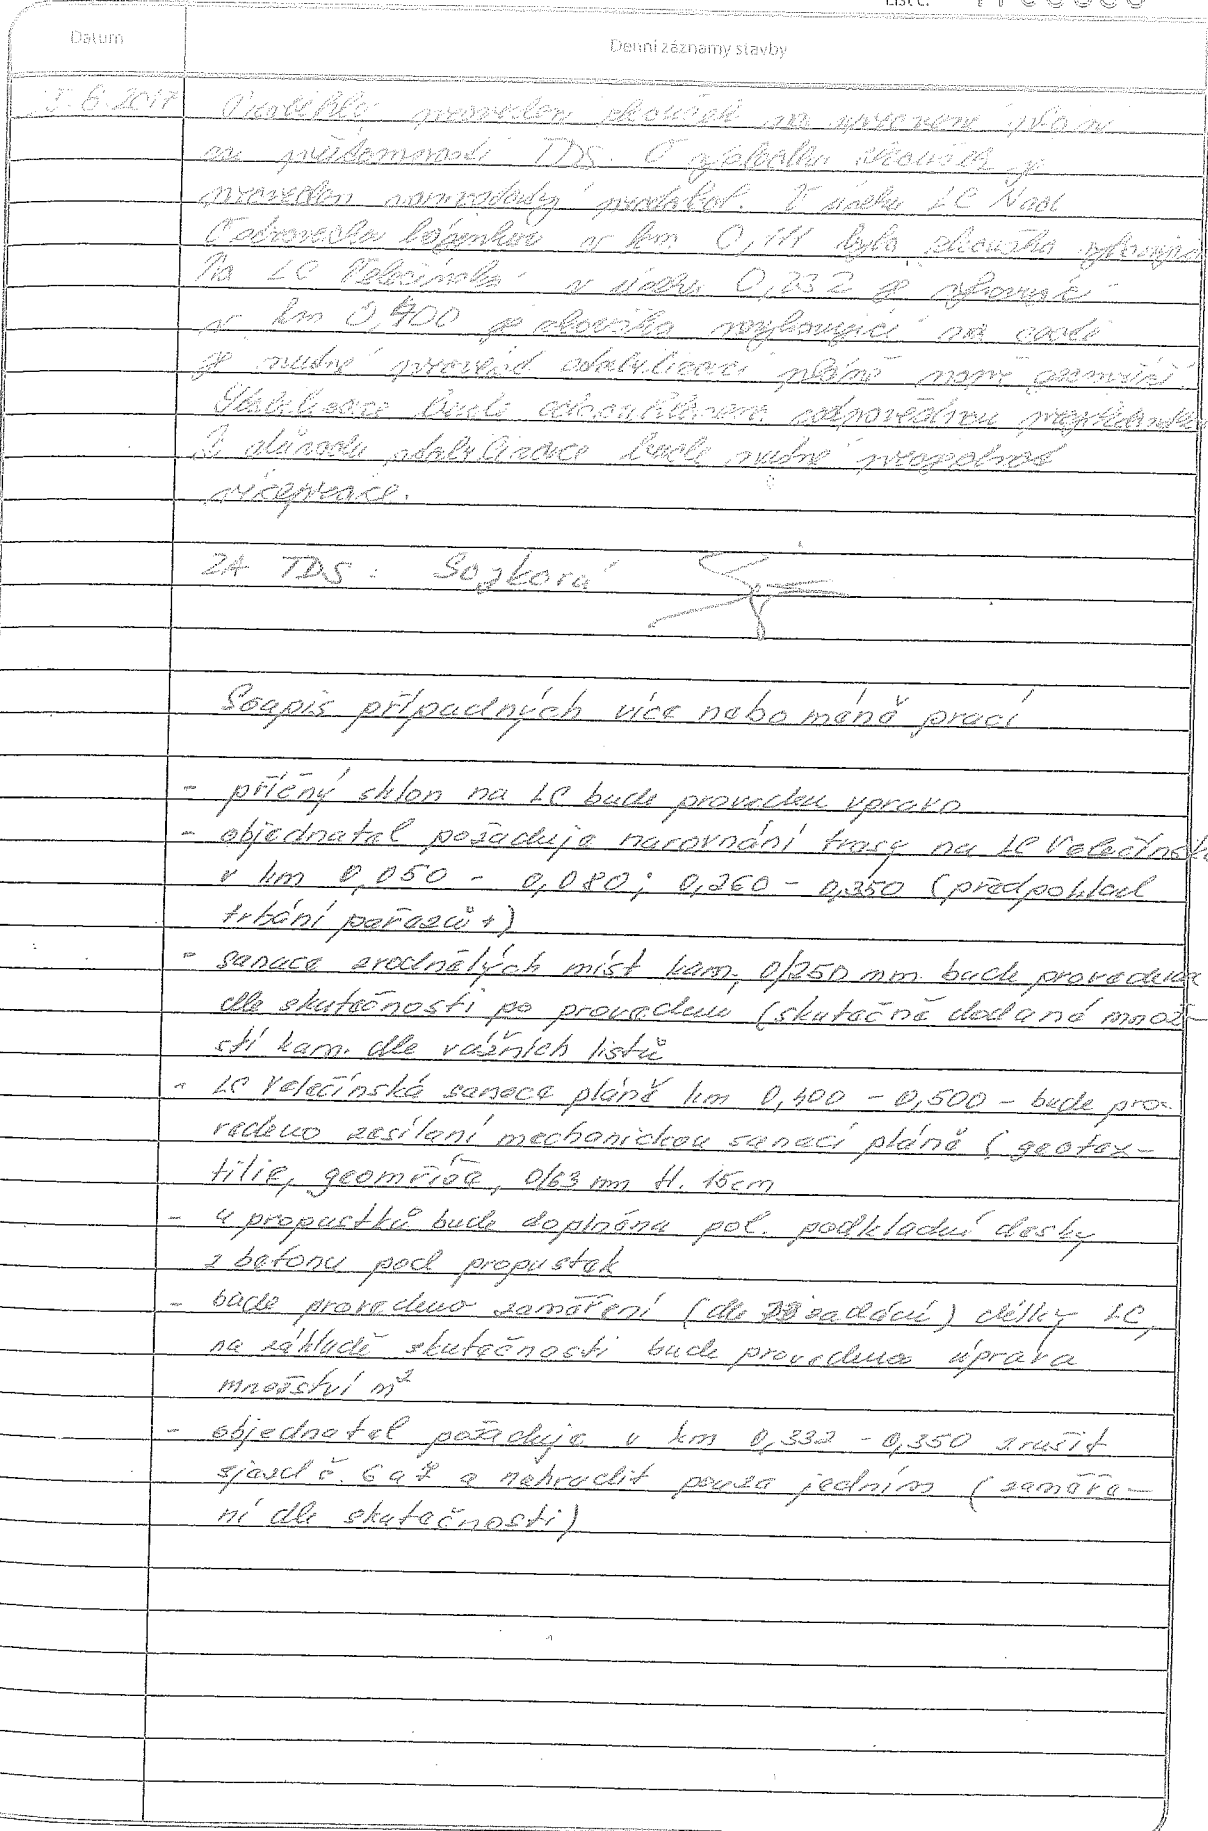 List č.
Datum
Denní záznamy stavby
5. 6. 2017 Proběhlo provedení zkoušek na upravené pláni
za přítomnosti TDS. O výsledku zkoušek je
proveden samostatný protokol. V úseku LC Nad
v km 0,111 byla zkouška vyhovující
Na LC Velečínská v úseku 0,232 je vyhovující
v km 0,400 je zkouška nevyhovující na
je nutné provést stabilizaci pláně např geomříží.
Stabilizace bude odsouhlasena odpovědnou
Z důvodu stabilizace bude nutné
vícepráce.
ZA TDS: Sojková
Soupis případných více nebo méně prací
- příčný sklon na LC bude provedeu vpravo
- objednatel požaduje narovnání trasy na LC Velečínsk.
v km 0,050 - 0,080; 0,260 - 0,350 (předpoklad
trhání pařezů +)
- sanace zvodnělých míst kam. 0/250 mm bude provedena
dle skutečnosti po provedeu (skutečně dodané množ-
ství kam. dle vážních listů
- LC Velečínská sanace pláně km 0,400 - 0,500 - bude pro-
vedeno zesílaní mechanickou sanací pláně (geotex-
tilie, geomříže, 0/63 mm tl. 15cm
- u propustků bude doplněna pol. podkladní desky
z betonu pod propustek
- bude provedeno zaměření (dle zadání) délky LC,
na základě skutečnosti bude provedena úprava
množství m²
- objednatel požaduje v km 0,332 - 0,350 zrušit
sjezd č. 6 a 7 a nahradit pouze jedním (zaměře-
ní dle skutečnosti)